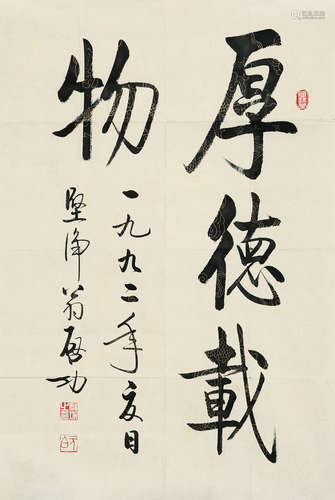 厚德載
物
一九九二年夏日
堅净翁啓功